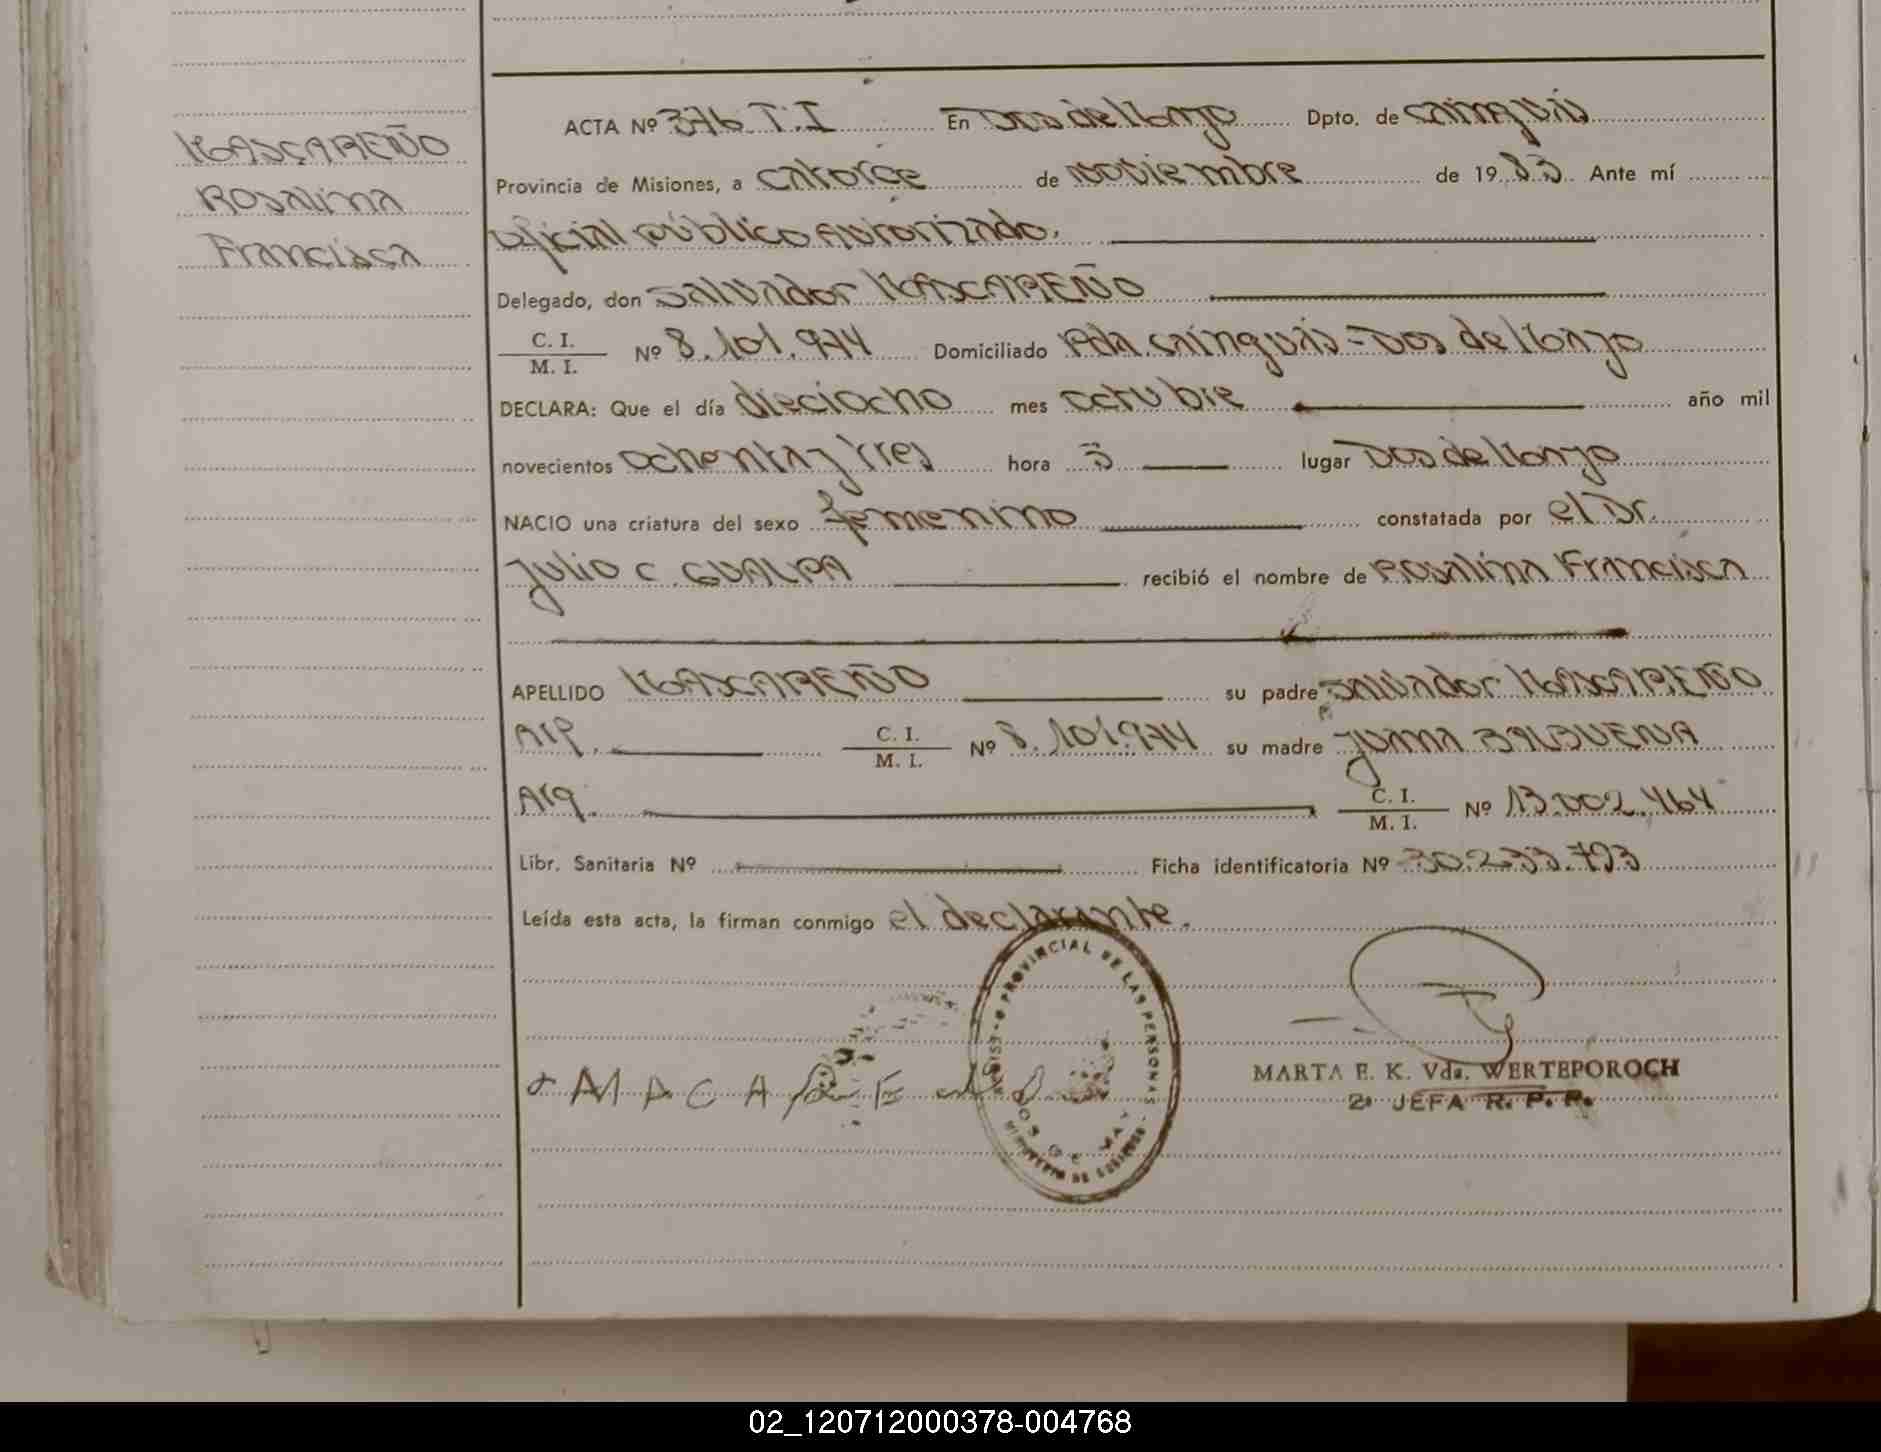 MASCAREÑO
Rosalina
Francisca
ACTA Nº 376 T.I En Dos de Mayo Dpto. de Cainguás
Provincia de Misiones, a catorce de noviembre de 1983. Ante mí
oficial público autorizado.
Delegado, don Salvador MASCAREÑO
C. I.
M. I. Nº 8.101.974 Domiciliado Pda. Cainguás - Dos de Mayo
DECLARA: Que el día dieciocho mes octubre año mil
novecientos ochenta y tres hora 3 lugar Dos de Mayo
NACIO una criatura del sexo femenino constatada por el Dr.
Julio C. GUALPA recibió el nombre de Rosalina Francisca
APELLIDO MASCAREÑO su padre Salvador MASCAREÑO
Arg. C. I.
M. I. Nº 8.101.974 su madre Juana BALBUENA
Arg. C. I.
M. I. Nº 13.002.464
Libr. Sanitaria Nº Ficha identificatoria Nº 30.233.793
Leída esta acta, la firman conmigo el declarante.
PROVINCIAL DE LAS PERSONAS
DOS DE MAY
MINISTERIO DE GOBIERNO
MARTA E. K. Vda. WERTEPOROCH
2º JEFA R. P. P.
02_120712000378-004768